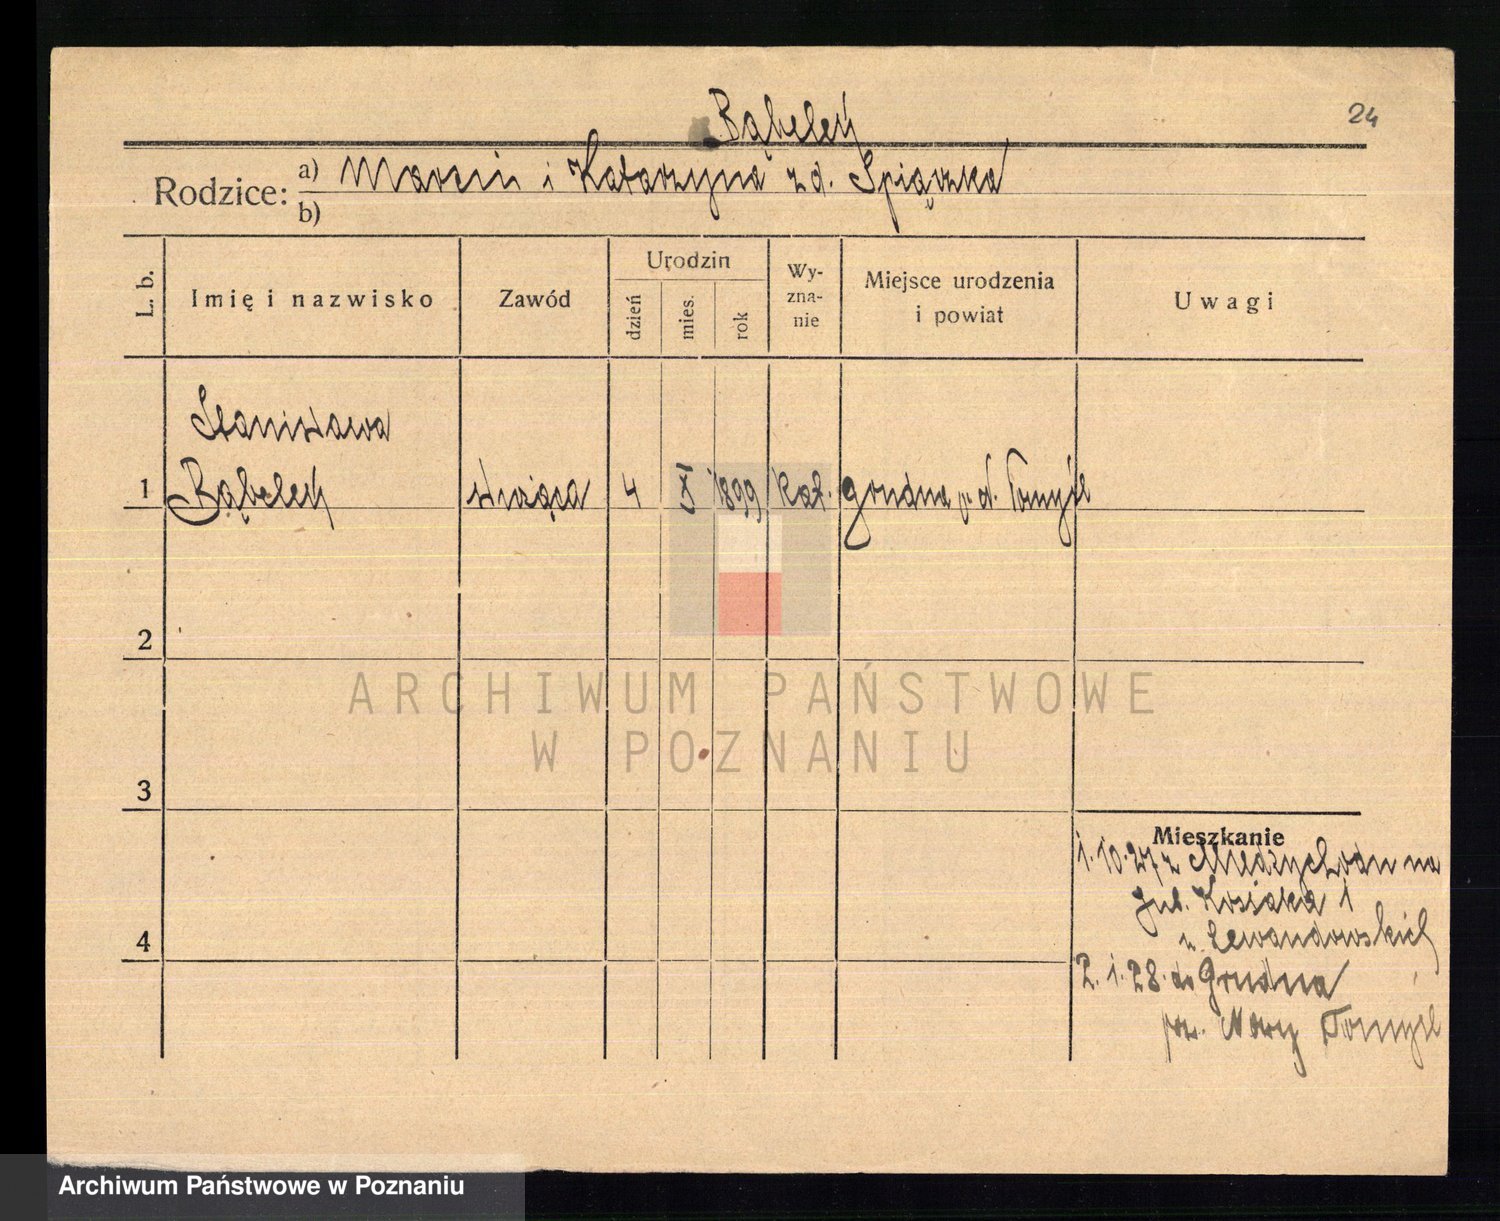 Bąbeleń
24
Rodzice: a) Marcin i Katarzyna z d. Spiączka
b)
L. b.
Imię i nazwisko
Zawód
Urodzin
dzień
mies.
rok
Wy-
zna-
nie
Miejsce urodzenia
i powiat
Uwagi
Stanisława
1 Bąbeleń służąca 4 X 1899 kat. Grudna p. N. Tomyśl
2
3
4
Mieszkanie
1.10.27 z Miedzychodu na
Kosiaka 1
u Lewandowskich
2.1.28. do Grudna
pow. Nowy Tomyśl
ARCHIWUM PAŃSTWOWE
W POZNANIU
Archiwum Państwowe w Poznaniu